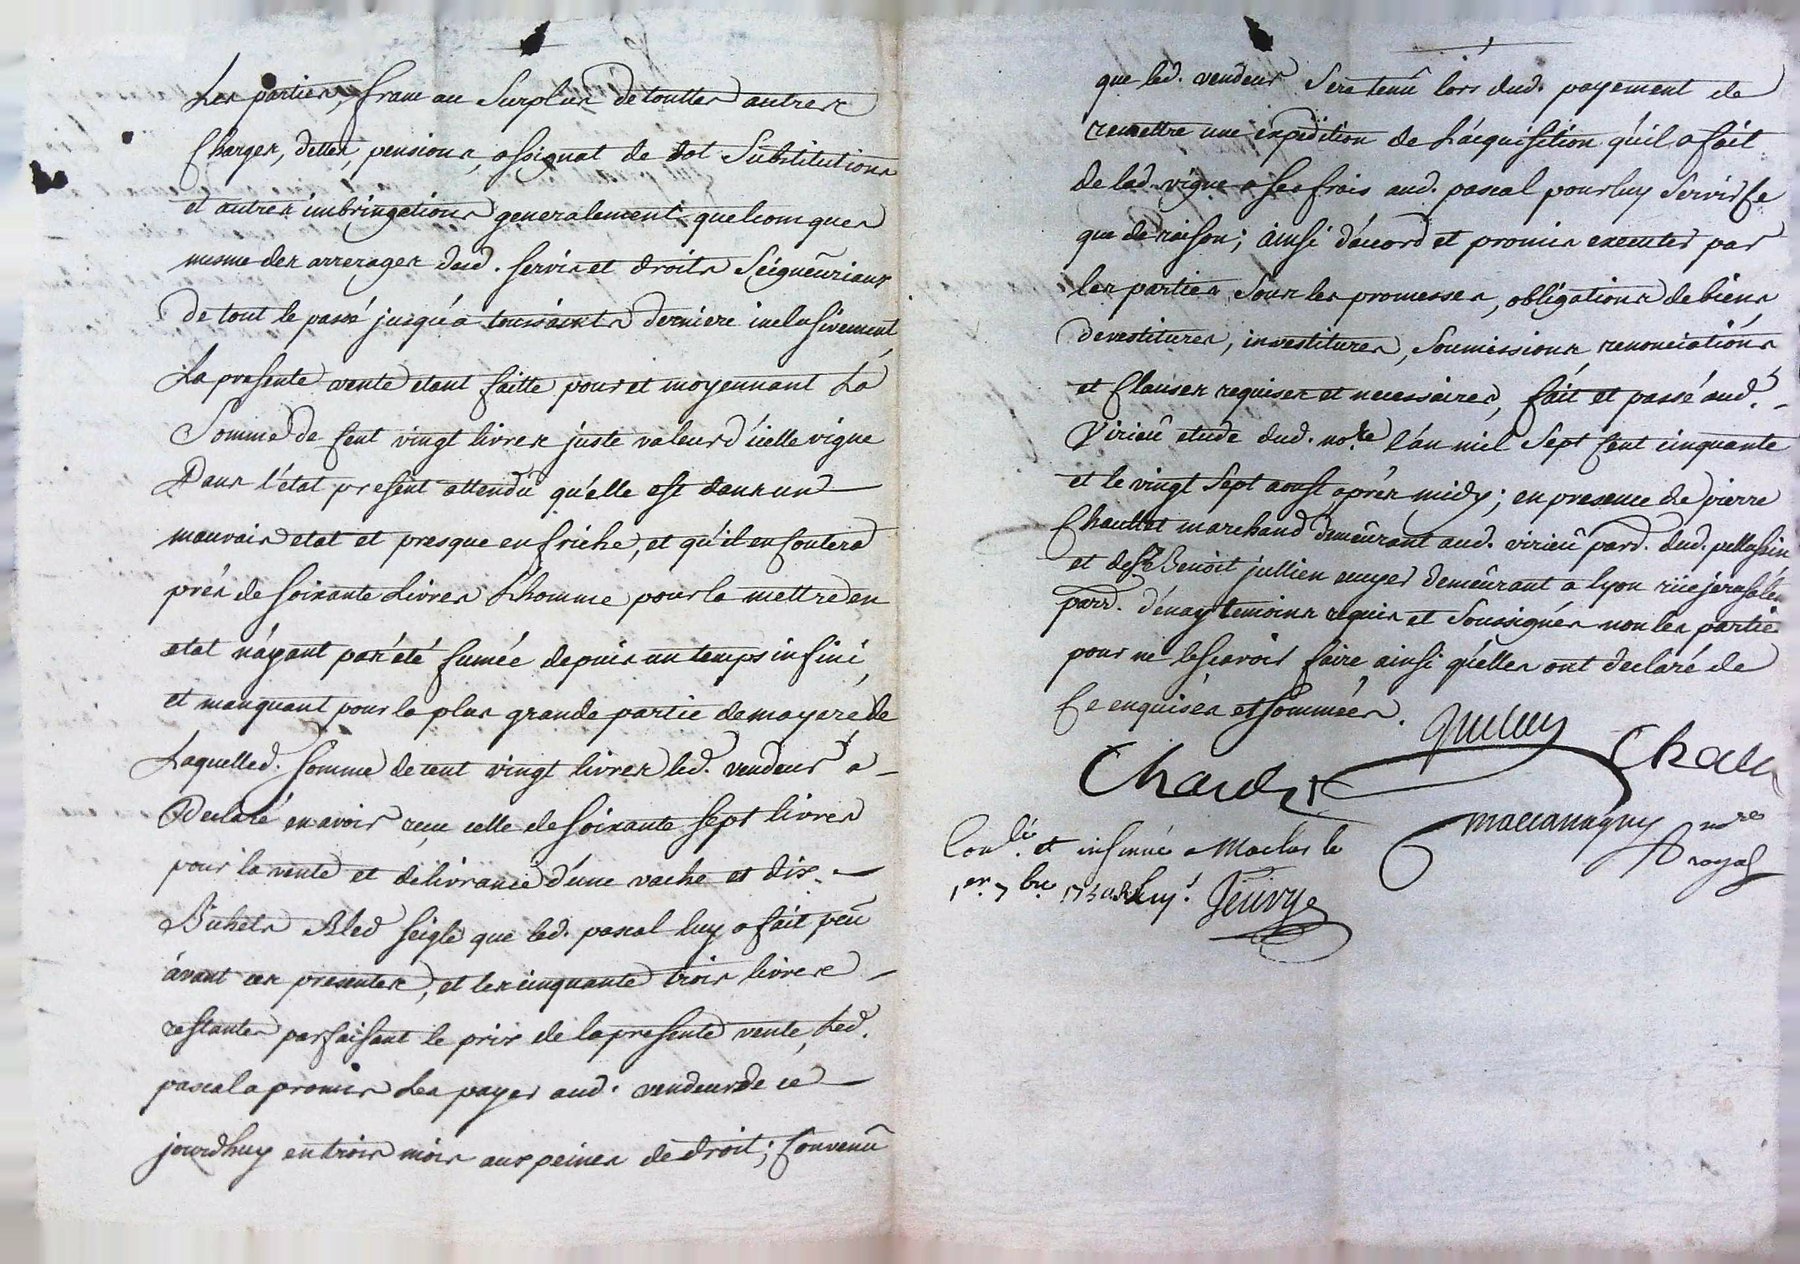 Les parties, franc au surplus de touttes autres
Charges, dettes, pensions, assignat de dot substitutions
et autres imbringations generalement quelcomques
mesme des arrerages desd. servis et droits Seigneuriaux
de tout le passé jusqu'a toussaints derniere inclusivement,
La presente vente etant faitte pour et moyennant La
Somme de Cent vingt livres juste valeur d'icelle vigne
Dans l'état présent attendu qu'elle est dans un
mauvais etat et presque en friche, et qu'il en Coutera
prés de soixante Livres L'homme pour la mettre en
etat n'ayant pas été fumée depuis un temps infini,
et manquant pour la plus grande partie de mayere de
Laquelled. somme de cent vingt livres led. vendeur a
Declaré en avoir reçu celle de soixante sept livres
pour la vente et delivrance d'une vache et dix
Bichets Bled seigle que led. pascal luy a fait peu
avant ces presentes, et les cinquante trois livres
restantes parfaisant le prix de la presente vente, Led.
pascal a promis Les payer aud. vendeur de ce
jourdhuy en trois mois aux peines de droit; Convenu
que led. vendeur sera tenu lors dud. payement de
remettre une expedition de L'acquisition qu'il a fait
de lad. vigne a ses frais aud. pascal pour luy servir Ce
que de raison; ainsi d'acord et promis executer par
les parties sous les promesses, obligations de biens
devestitures, investitures, soumissions renonciations
et Clauses requises et necessaires, fait et passé aud.
Virieu etude dud. nore. l'an mil sept Cent cinquante
et le vingt sept aoust aprés midy; en presence de pierre
Chautet marchand demeurant aud. virieu parr. dud. pellussin
et de sr. Benoit jullien ecuyer demeurant a lyon rüe jerusalem
parr. d'enay temoins requis et soussignés non les parties
pour ne le scavoir faire ainsi qu'elles ont declaré de
Ce enquises et sommées.
Chaulet
nore
royal
Conlé. et insinué a Maclas le
1er. 7bre 1750.